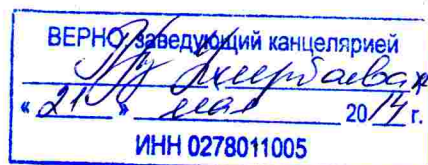 ВЕРНО, заведующий канцелярией
« 21 » мая 2014 г.
ИНН 0278011005